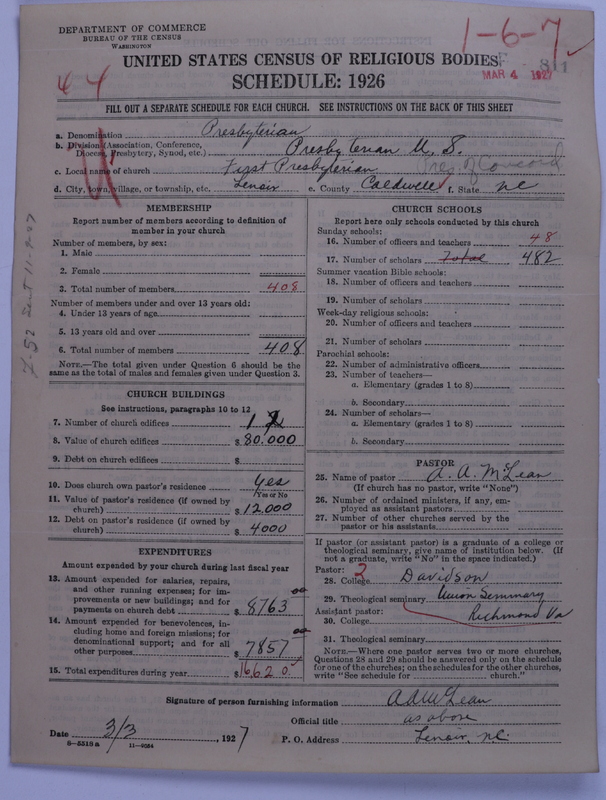 DEPARTMENT OF COMMERCE
BUREAU OF THE CENSUS
WASHINGTON
1-6-7
44
UNITED STATES CENSUS OF RELIGIOUS BODIES
MAR 4 1927
SCHEDULE: 1926
FILL OUT A SEPARATE SCHEDULE FOR EACH CHURCH. SEE INSTRUCTIONS ON THE BACK OF THIS SHEET
a. Denomination Presbyterian
b. Division (Association, Conference, Diocese, Presbytery, Synod, etc.) Presbyterian U. S.
Pres. of Concord
c. Local name of church First Presbyterian
d. City, town, village, or township, etc. Lenoir e. County Caldwell f. State NC
MEMBERSHIP
Report number of members according to definition of
member in your church
Number of members, by sex:
1. Male
2. Female
3. Total number of members 408
Number of members under and over 13 years old:
4. Under 13 years of age
5. 13 years old and over
6. Total number of members 408
NOTE.—The total given under Question 6 should be the
same as the total of males and females given under Question 3.
CHURCH BUILDINGS
See instructions, paragraphs 10 to 12
7. Number of church edifices 1
8. Value of church edifices $ 80.000
9. Debt on church edifices $
10. Does church own pastor's residence? Yes
Yes or No
11. Value of pastor's residence (if owned by
church) $ 12,000
12. Debt on pastor's residence (if owned by
church) $ 4000
EXPENDITURES
Amount expended by your church during last fiscal year
13. Amount expended for salaries, repairs,
and other running expenses; for im-
provements or new buildings; and for
payments on church debt $ 8763 00
14. Amount expended for benevolences, in-
cluding home and foreign missions; for
denominational support; and for all
other purposes $ 7857 00
15. Total expenditures during year $ 16620
CHURCH SCHOOLS
Report here only schools conducted by this church
Sunday schools:
16. Number of officers and teachers 48
17. Number of scholars Total 482
Summer vacation Bible schools:
18. Number of officers and teachers
19. Number of scholars
Week-day religious schools:
20. Number of officers and teachers
21. Number of scholars
Parochial schools:
22. Number of administrative officers
23. Number of teachers—
a. Elementary (grades 1 to 8)
b. Secondary
24. Number of scholars—
a. Elementary (grades 1 to 8)
b. Secondary
PASTOR
25. Name of pastor A. A. McLean
(If church has no pastor, write "None")
26. Number of ordained ministers, if any, em-
ployed as assistant pastors
27. Number of other churches served by the
pastor or his assistants
If pastor (or assistant pastor) is a graduate of a college or
theological seminary, give name of institution below. (If
not a graduate, write "No" in the space indicated.)
Pastor:
28. College 2 Davidson
29. Theological seminary Union Seminary
Assistant pastor: Richmond Va
30. College
31. Theological seminary
NOTE.—Where one pastor serves two or more churches,
Questions 28 and 29 should be answered only on the schedule
for one of the churches; on the schedules for the other churches,
write "See schedule for church."
Signature of person furnishing information A A McLean
Official title as above
Date 3/3, 1927 P. O. Address Lenoir, NC.
8-5518a 11-9064